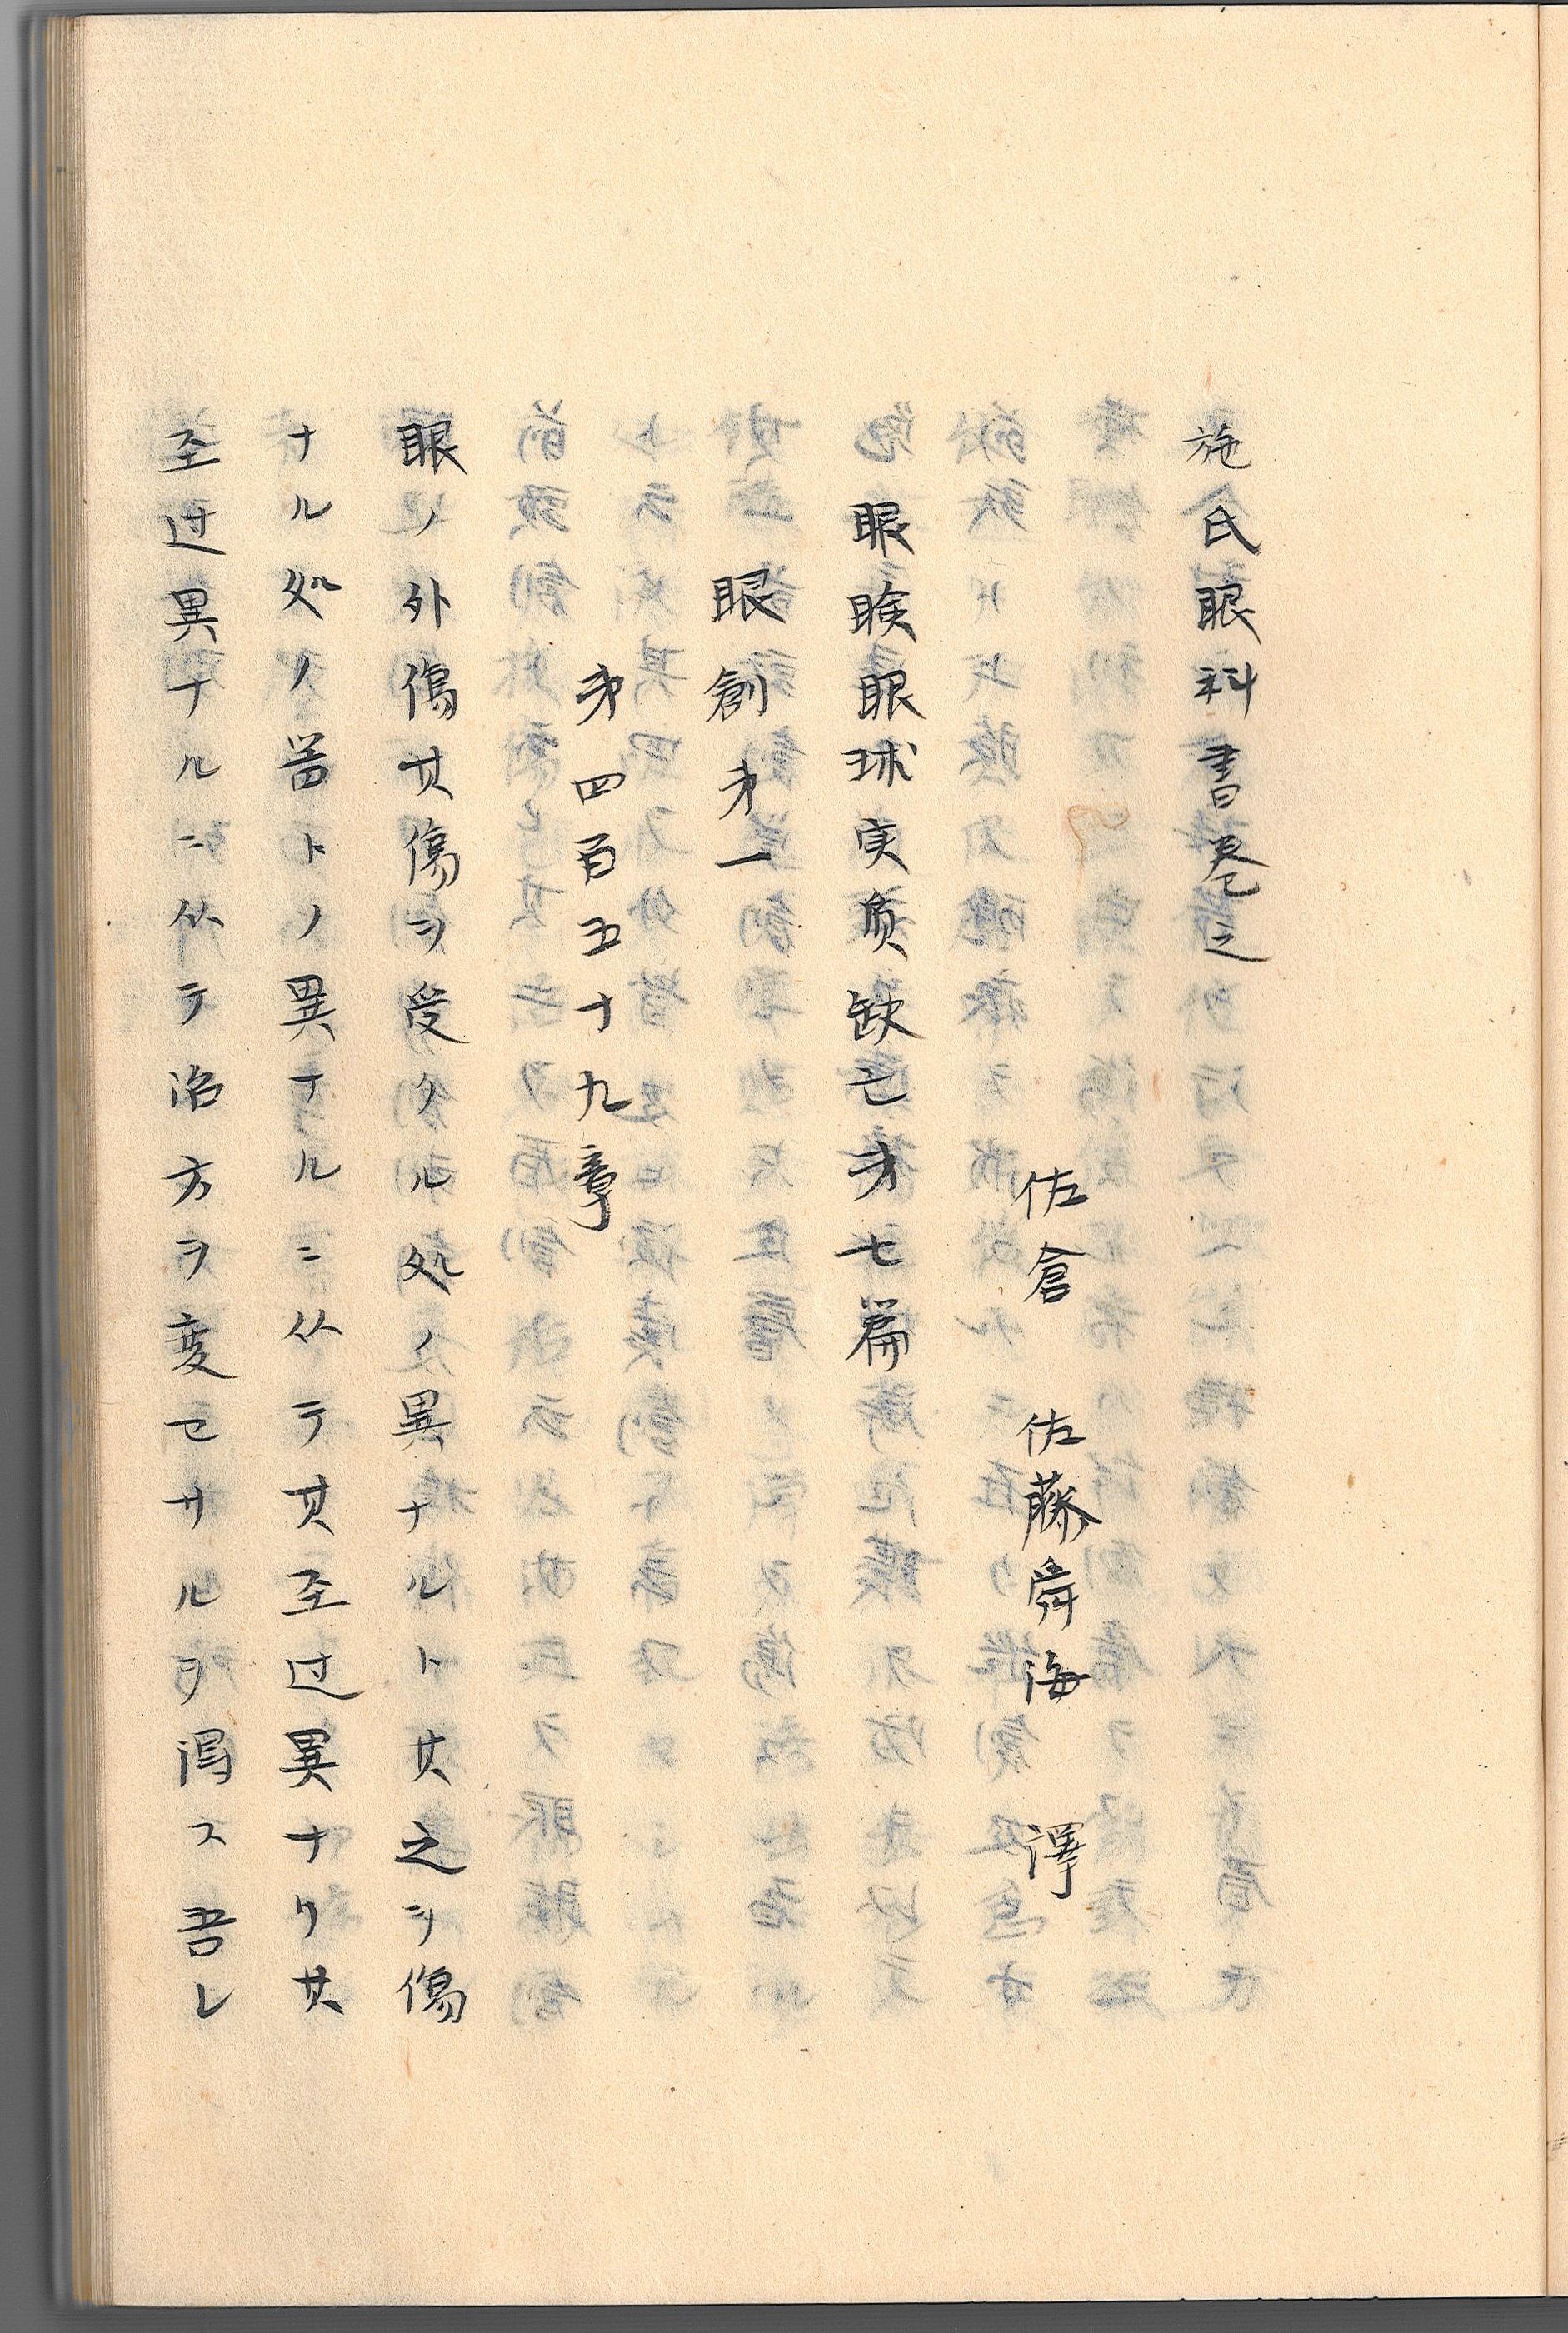 施氏眼科書巻之
佐倉 佐藤舜海 譯
眼瞼眼球実质缺亡才七篇
眼創才一
才四百五十九章
眼ノ外傷其傷ヲ受クル処ノ異ナルト其之ヲ傷
ナル処ノ器トノ異ナルニ从テ其至过異ナリ其
至过異ナルニ从テ治方ヲ変セサルヲ得ス吾レ